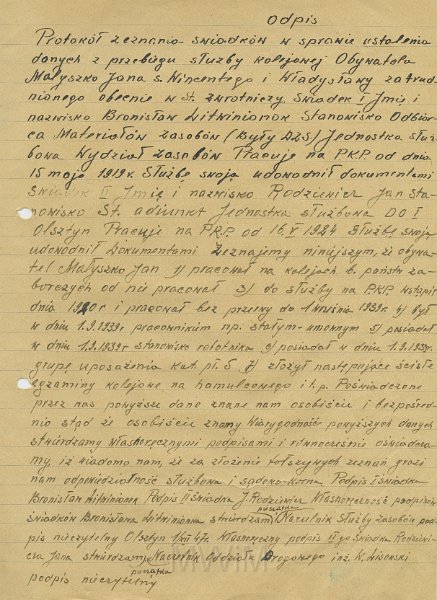 Odpis
Protokół zeznania świadków w sprawie ustalenia
danych z przebiegu służby kolejowej Obywatela
Małyszko Jana s. Wincentego i Władysławy zatrud
nionego obecnie w St. zwrotniczy Świadek I Imię i
nazwisko Bronisław Litwinionok Stanowisko Odbior
ca Materiałów Zasobów (Były DZS) Jednostka służ
bowa Wydział Zasobów Pracuje na P.K.P. od dnia
15 maja 1919 r. Służbę swoją udowodnił dokumentami
Świadek II Imię i nazwisko Rodziewicz Jan Sta-
nowisko St. adiunkt Jednostka służbowa DO I
Olsztyn Pracuje na P.K.P. od 16.V 1924 Służbę swoją
udowodnił Dokumentami Zeznajemy niniejszym, że obywa-
tel Małyszko Jan 1) pracował na kolejach b. państw za-
borczych od nie pracował 3) do służby na PKP wstąpił
dnia 1920 r i pracował bez przerwy do 1 września 1939 r. 4) był
w dniu 1.9.1939 r. pracownikiem np. stałym-umownym 5) posiadał
w dniu 1.9.1939 r stanowisko robotnika 6) posiadał w dniu 1.9.1939 r.
grupę uposażenia kat. pł. 5 7) złożył następujące ścisłe
egzaminy kolejowe na hamulcowego i t.p. Poświadczone
przez nas powyższe dane znane nam osobiście i bezpośred-
nio stąd że osobiście znamy Wiarygodność powyższych danych
stwierdzamy własnoręcznymi podpisami i równocześnie oświadcza-
my, iż wiadomo nam, że za złożenie fałszywych zeznań grozi
nam odpowiedzialność służbowa i sądowo-karna. Podpis I świadka
Bronisław Litwinionok Podpis II świadka J. Rodziewicz Własnoręczność podpisów
świadków Bronisława Litwinionka stwierdzam pieczątka Naczelnik Służby zasobów pod-
pis nieczytelny Olsztyn Własnoręczny podpis II go Świadka Rodziewi-
cza Jana stwierdzam Naczelnik Oddziału Drogowego inż. K. Lisowski
pieczątka
podpis nieczytelny